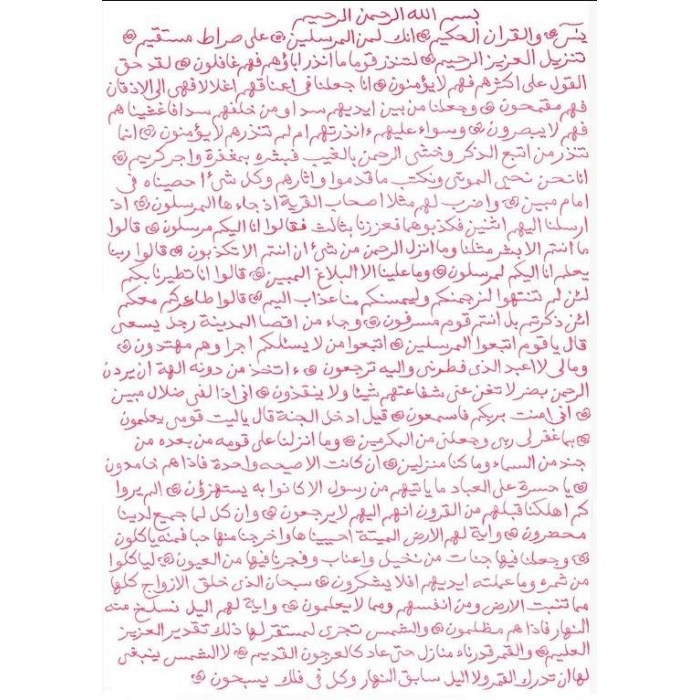 بسم الله الرحمن الرحيم
يس۞ والقران الحكيم۞ انك لمن المرسلين۞ على صراط مستقيم۞
تنزيل العزيز الرحيم۞ لتنذر قوما ما انذر اباؤهم فهم غافلون۞ لقد حق
القول على اكثرهم فهم لا يؤمنون۞ انا جعلنا فى اعناقهم اغلالا فهى الى الاذقان
فهم مقمحون۞ وجعلنا من بين ايديهم سدا ومن خلفهم سدا فاغشيناهم
فهم لا يبصرون۞ وسواء عليهم ءانذرتهم ام لم تنذرهم لا يؤمنون۞ انما
تنذر من اتبع الذكر وخشى الرحمن بالغيب فبشره بمغفرة واجر كريم۞
انا نحن نحيى الموتى ونكتب ما قدموا واثارهم وكل شئ احصيناه فى
امام مبين۞ واضرب لهم مثلا اصحاب القرية اذ جاءها المرسلون۞ اذ
ارسلنا اليهم اثنين فكذبوهما فعززنا بثالث فقالوا انا اليكم مرسلون۞ قالوا
ما انتم الا بشر مثلنا وما انزل الرحمن من شئ ان انتم الا تكذبون۞ قالوا ربنا
يعلم انا اليكم لمرسلون۞ وما علينا الا البلاغ المبين۞ قالوا انا تطيرنا بكم
لئن لم تنتهوا لنرجمنكم وليمسنكم منا عذاب اليم۞ قالوا طاءركم معكم
ائن ذكرتم بل انتم قوم مسرفون۞ وجاء من اقصا المدينة رجل يسعى
قال ياقوم اتبعوا المرسلين۞ اتبعوا من لا يسئلكم اجرا وهم مهتدون۞
ومالى لا اعبد الذى فطرنى واليه ترجعون۞ ءاتخذ من دونه الهة ان يردن
الرحمن بضر لا تغن عنى شفاعتهم شيئا ولا ينقذون۞ انى اذا لفى ضلال مبين
۞ انى امنت بربكم فاسمعون۞ قيل ادخل الجنة قال ياليت قومى يعلمون
۞ بما غفر لى ربى وجعلنى من المكرمين۞ وما انزلنا على قومه من بعده من
جند من السماء وما كنا منزلين۞ ان كانت الا صيحه واحدة فاذا هم خامدون
۞ يا حسرة على العباد ما ياتيهم من رسول الا كانوا به يستهزؤن۞ الم يروا
كم اهلكنا قبلهم من القرون انهم اليهم لا يرجعون۞ وان كل لما جميع لدينا
محضرون۞ واية لهم الارض الميتة احييناها واخرجنا منها حبا فمنه ياكلون
۞ وجعلنا فيها جنات من نخيل واعناب وفجرنا فيها من العيون۞ لياكلوا
من ثمره وما عملته ايديهم افلا يشكرون۞ سبحان الذى خلق الازواج كلها
مما تنبت الارض ومن انفسهم ومما لا يعلمون۞ واية لهم اليل نسلخ منه
النهار فاذا هم مظلمون۞ والشمس تجرى لمستقر لها ذلك تقدير العزيز
العليم۞ والقمر قدرناه منازل حتى عاد كالعرجون القديم۞ لا الشمس ينبغى
لها ان تدرك القمر ولا اليل سابق النهار وكل فى فلك يسبحون۞